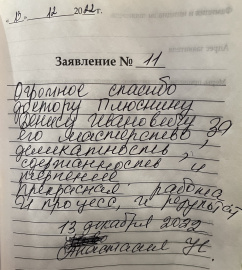 «13» 12 2022г.
Заявление № 11
Огромное спасибо
доктору Плюснину
Денису Ивановичу за
его мастерство,
деликатность,
сдержанность и
терпение
прекрасная работа
и процесс, и результат
13 декабря 2022
Анастасия Ч.